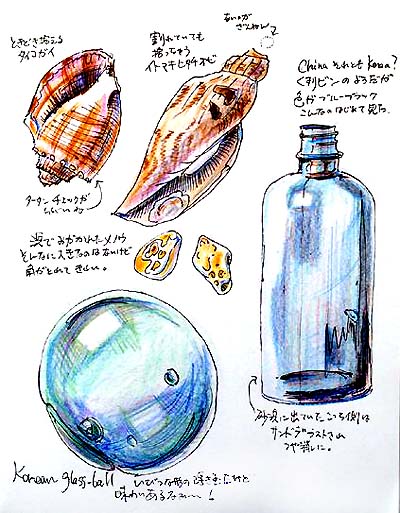 ときどき拾える
タイコガイ
割れていても
拾っちゃう
イトマキヒタチオビ
あいかが
ざんねん
China それとも Korea?
くすりビンのようだが
色がブルーブラック
こんなのはじめて見た。
タータンチェックが
波でみがかれたメノウ
そんなに大きなのはないけど
角がとれてきれい。
砂浜に出ていたこっち側は
サンドブラストされ
つや消しに。
Korean glass-ball
いびつな形の浮き玉だけど
味わいあるなぁー!